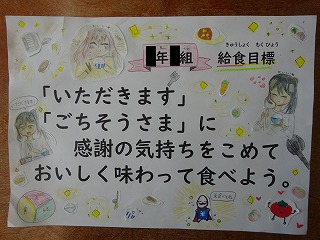 年 組 給食目標
きゅうしょく もくひょう
「いただきます」
「ごちそうさま」に
感謝の気持ちをこめて
おいしく味わって食べよう。